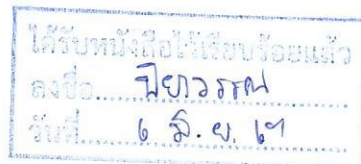 ได้รับหนังสือไว้เรียบร้อยแล้ว
ลงชื่อ......ปิยาวรรณ
วันที่......๖ มิ.ย. ๖๑